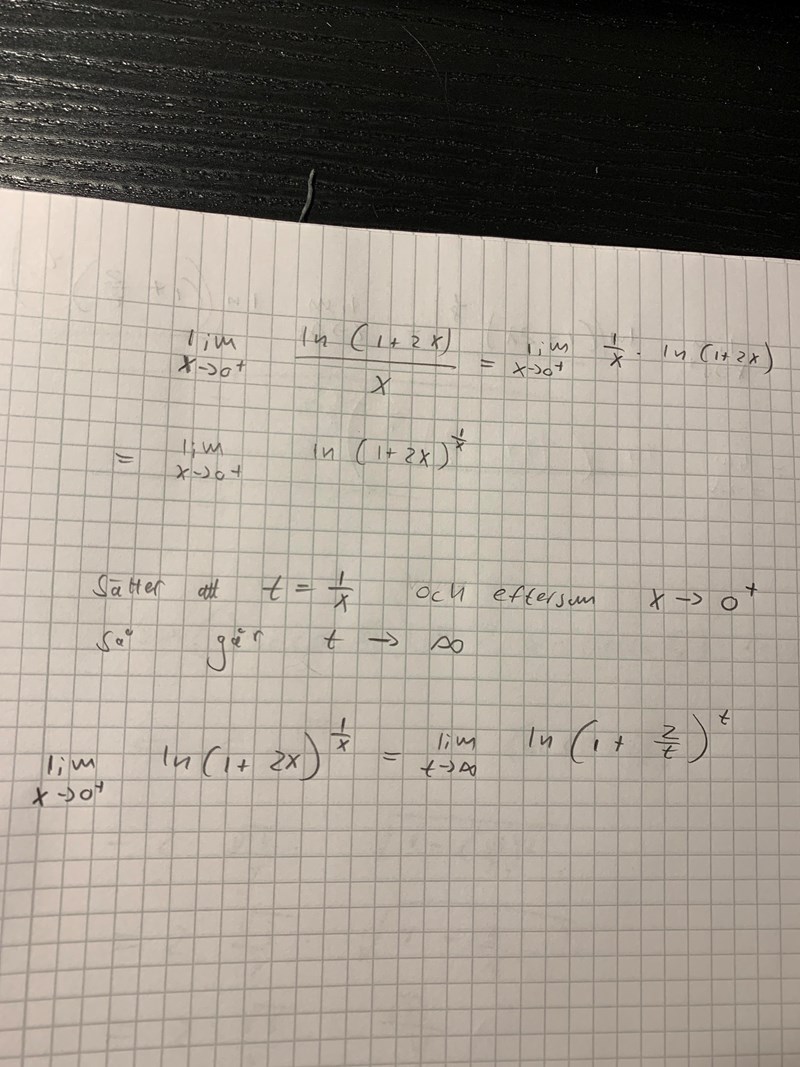 lim x→0+ ln (1+2x)/x = lim x→0+ 1/x · ln (1+2x)
= lim x→0+ ln (1+2x)^(1/x)
Sätter att t = 1/x och eftersom x → 0+
så går t → ∞
lim x→0+ ln (1+ 2x)^(1/x) = lim t→∞ ln (1 + 2/t)^t